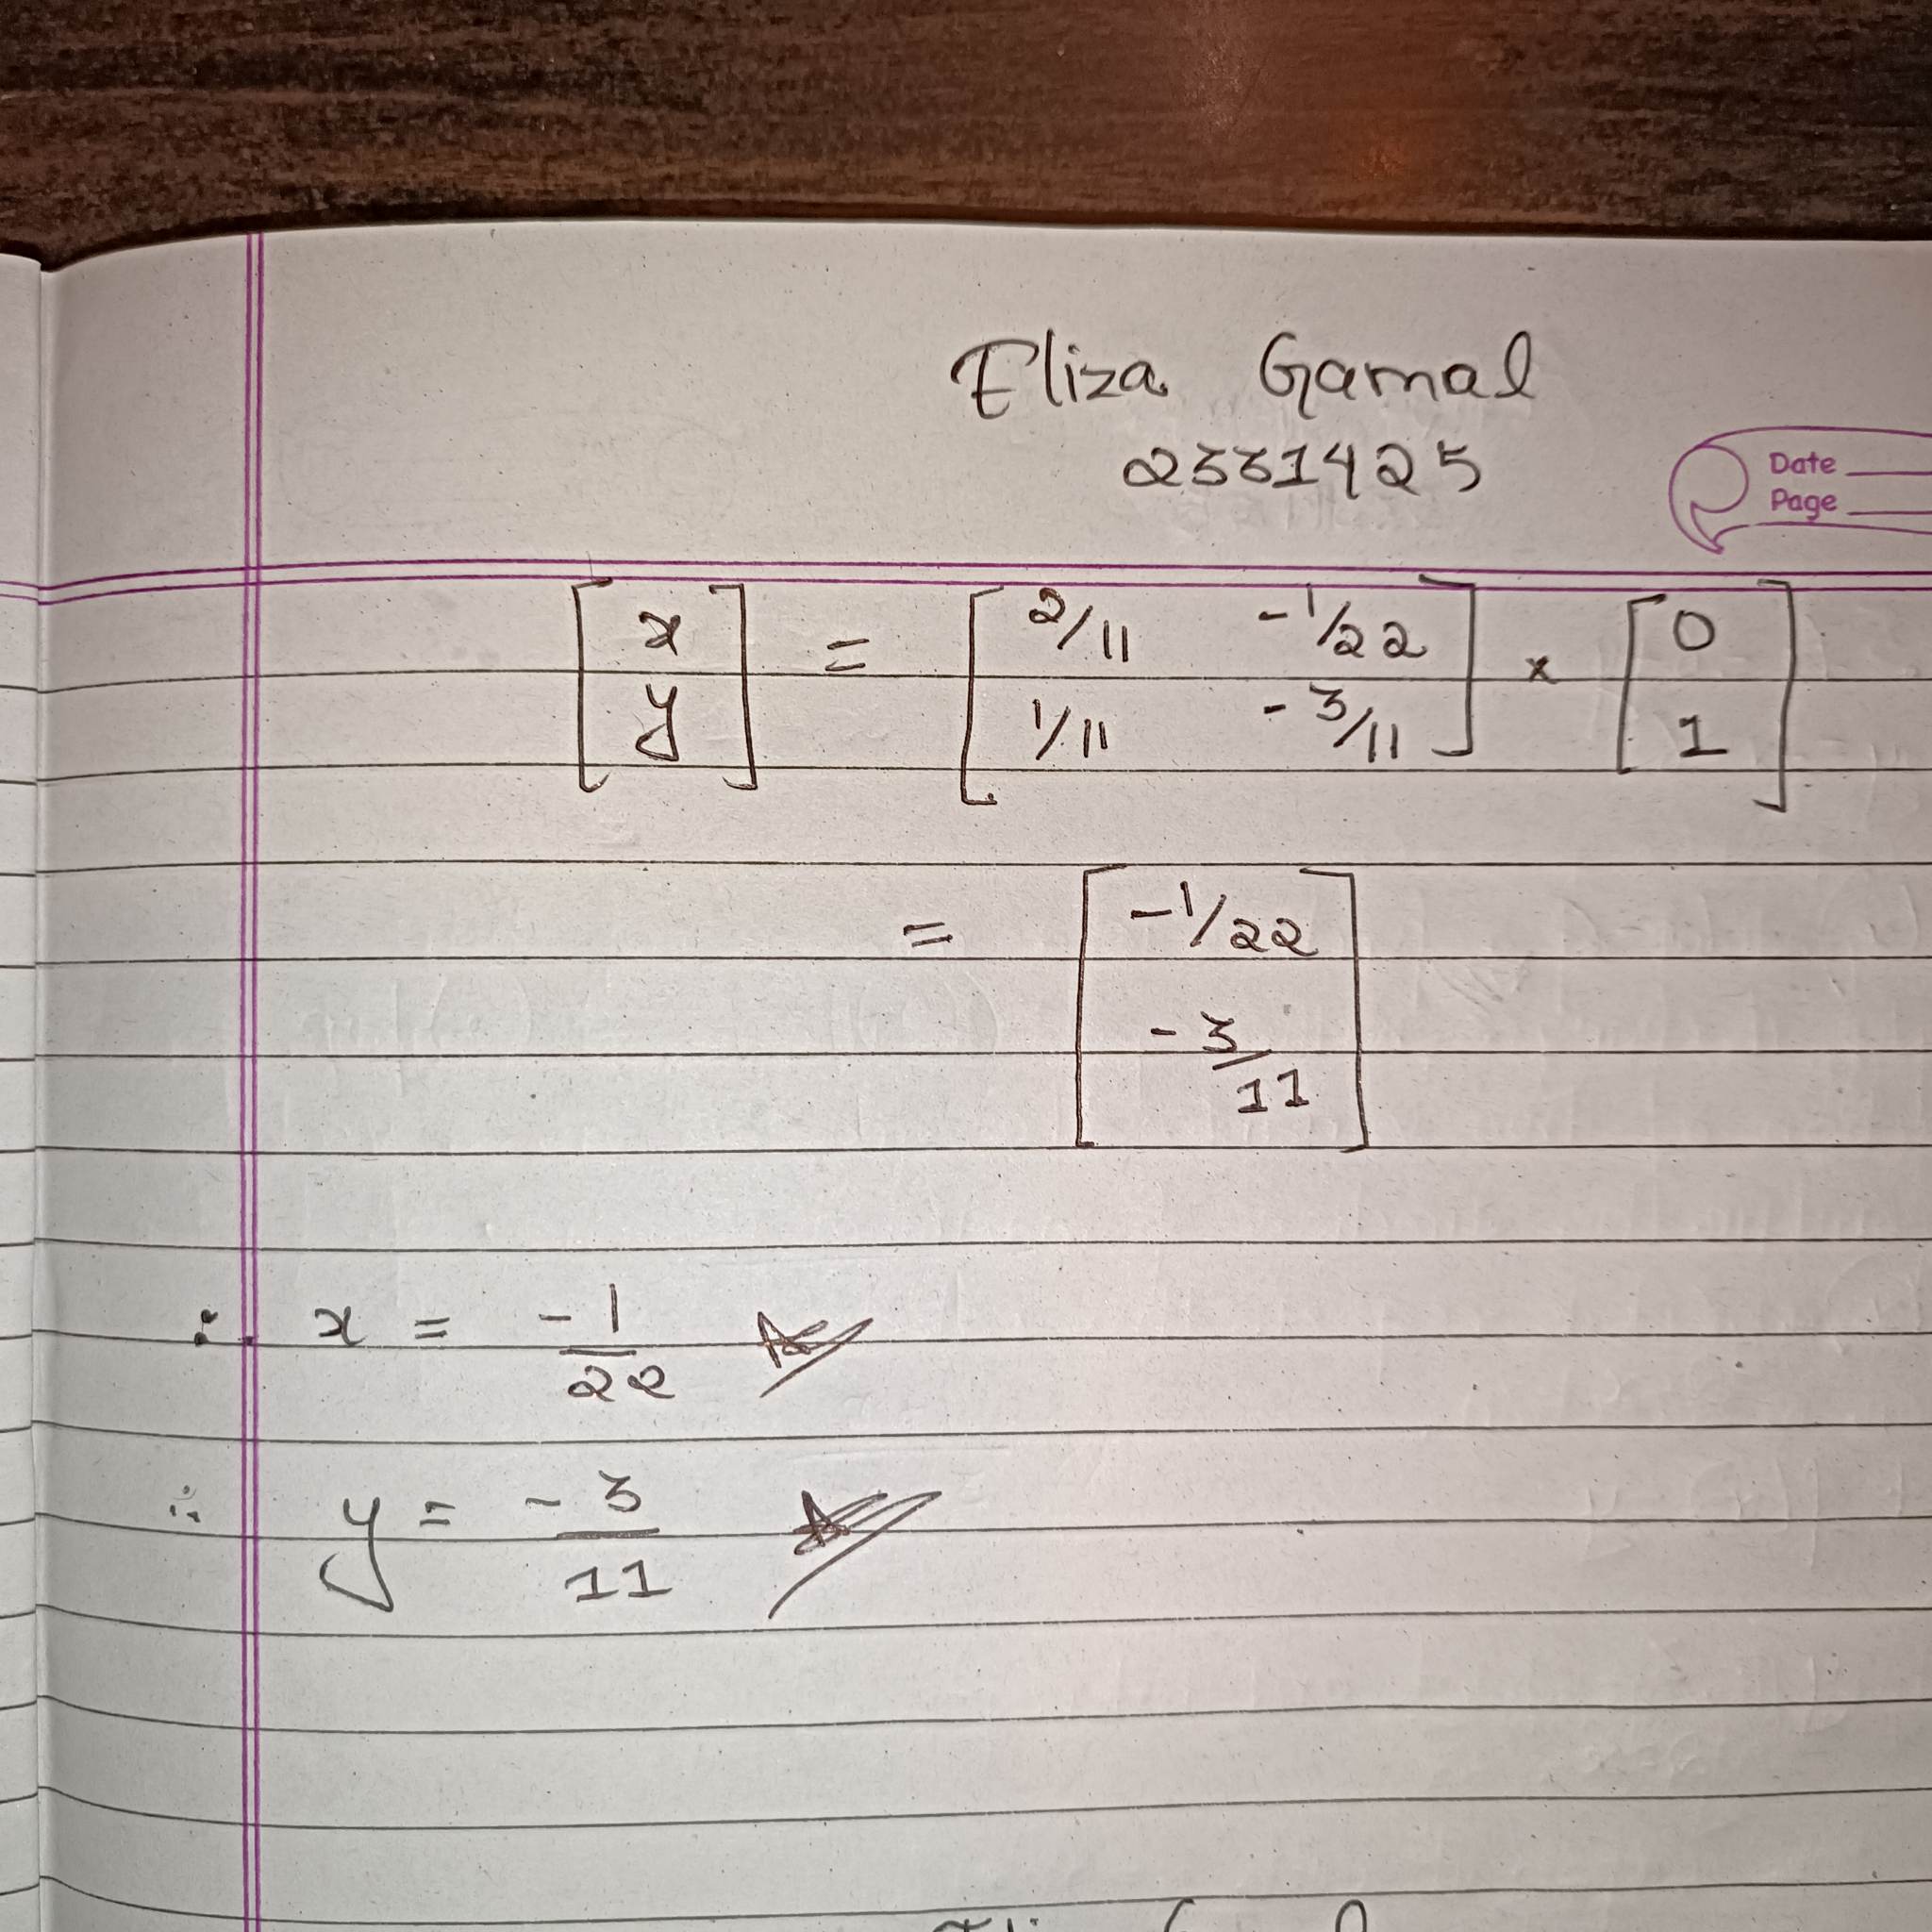 Eliza Gamal
2331425
Date
Page
[x y] = [2/11 -1/22 1/11 -3/11] × [0 1]
= [-1/22 -3/11]
∴ x = -1/22
∴ y = -3/11